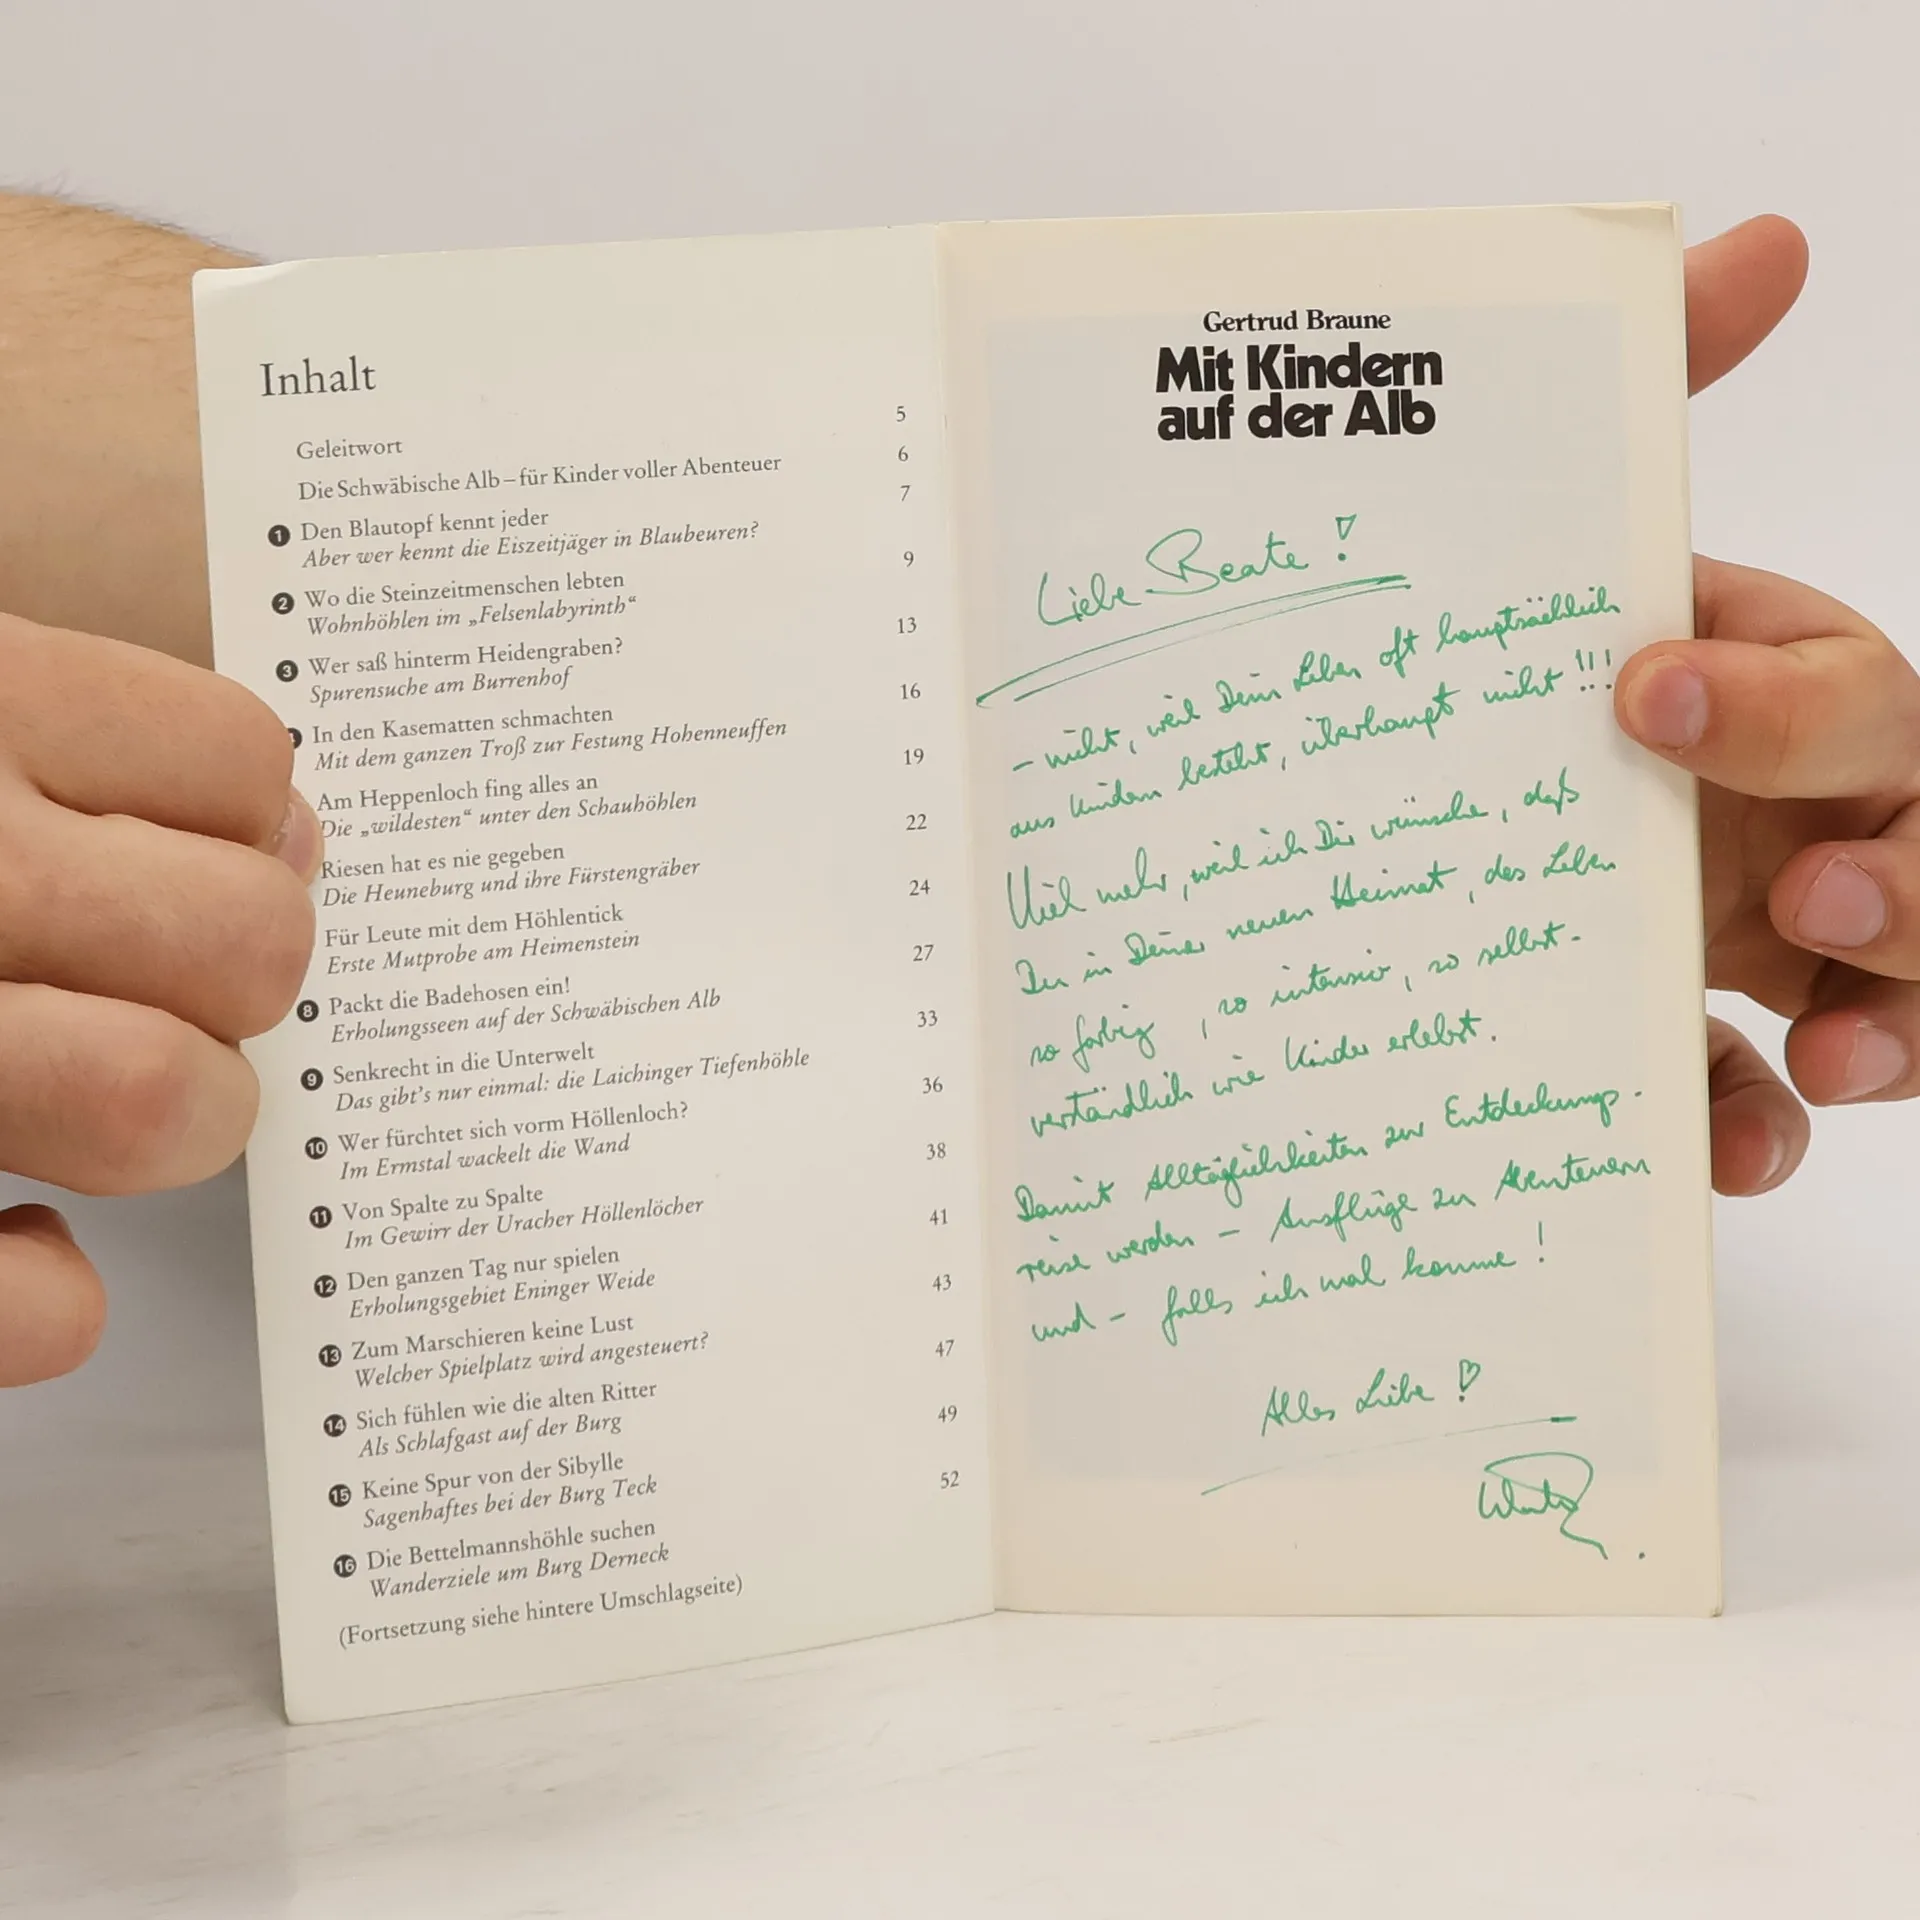 Inhalt
Geleitwort 5
Die Schwäbische Alb – für Kinder voller Abenteuer 6
1 Den Blautopf kennt jeder 7
Aber wer kennt die Eiszeitjäger in Blaubeuren?
2 Wo die Steinzeitmenschen lebten 9
Wohnhöhlen im „Felsenlabyrinth“
3 Wer saß hinterm Heidengraben? 13
Spurensuche am Burrenhof
In den Kasematten schmachten 16
Mit dem ganzen Troß zur Festung Hohenneuffen
Am Heppenloch fing alles an 19
Die „wildesten“ unter den Schauhöhlen
Riesen hat es nie gegeben 22
Die Heuneburg und ihre Fürstengräber
Für Leute mit dem Höhlentick 24
Erste Mutprobe am Heimenstein
8 Packt die Badehosen ein! 27
Erholungsseen auf der Schwäbischen Alb
9 Senkrecht in die Unterwelt 33
Das gibt's nur einmal: die Laichinger Tiefenhöhle
10 Wer fürchtet sich vorm Höllenloch? 36
Im Ermstal wackelt die Wand
11 Von Spalte zu Spalte 38
Im Gewirr der Uracher Höllenlöcher
12 Den ganzen Tag nur spielen 41
Erholungsgebiet Eninger Weide
13 Zum Marschieren keine Lust 43
Welcher Spielplatz wird angesteuert?
14 Sich fühlen wie die alten Ritter 47
Als Schlafgast auf der Burg
15 Keine Spur von der Sibylle 49
Sagenhaftes bei der Burg Teck
16 Die Bettelmannshöhle suchen 52
Wanderziele um Burg Derneck
(Fortsetzung siehe hintere Umschlagseite)
Gertrud Braune
Mit Kindern
auf der Alb
Liebe Beate!
– nicht, weil Dein Leben oft hauptsächlich
aus Kindern besteht, überhaupt nicht!!!
Viel mehr, weil ich Dir wünsche, daß
Du in Deiner neuen Heimat, das Leben
so farbig, so intensiv, so selbst-
verständlich wie Kinder erlebst.
Damit Alltäglichkeiten zur Entdeckungs-
reise werden – Ausflüge zu Abenteuern
und – falls ich mal komme!
Alles Liebe!